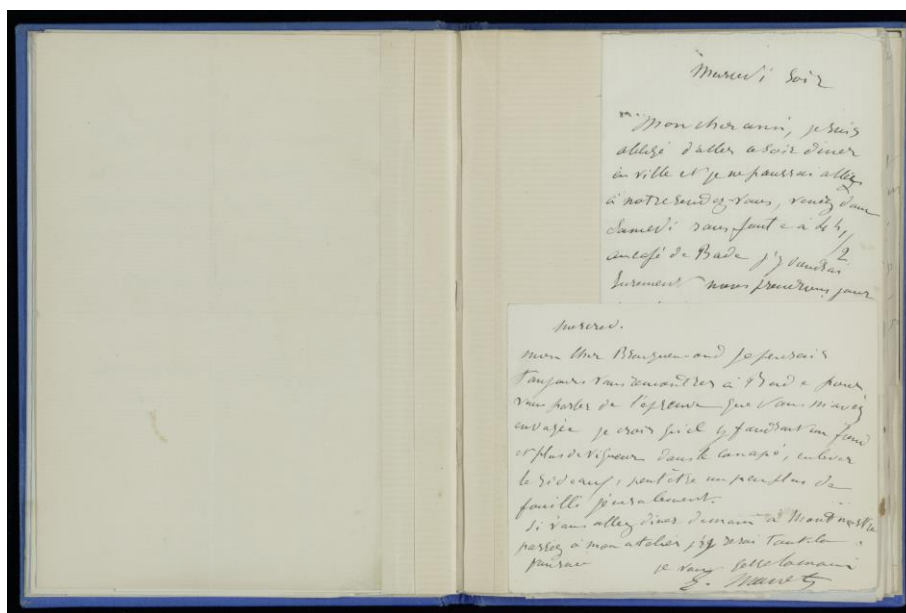 Mercredi soir
Mon cher ami, je suis
obligé d'aller ce soir diner
en ville et je ne pourrai aller
à notre rendez-vous, venez donc
Samedi sans faute à 4 h 1/2
au café de Bade j'y viendrai
surement nous prendrons jour
mercred.
mon cher Bracquemond je pensais
toujours vous rencontrer à Bade pour
vous parler de l'épreuve que vous m'avez
envoyée je crois qu'il y faudrait un fond
et plus de vigueur dans le canapé, enlever
le rideau, peut être un peu plus de
fouilli généralement.
si vous allez diner demain à Montmartre
passez à mon atelier, j'y serai tout la
je vous serre la main
E. Manet